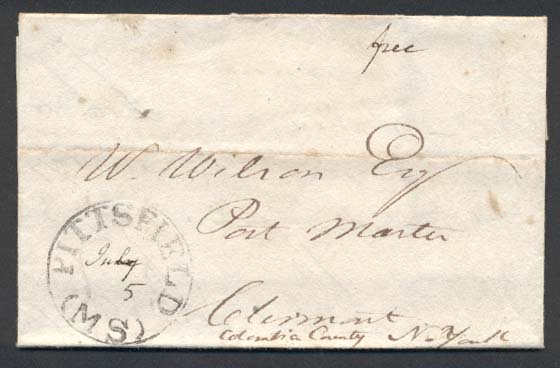 free
W. Wilson Esq
Post Master
Clermont
Colombia County N. York
PITTSFIELD
July
5
(MS)